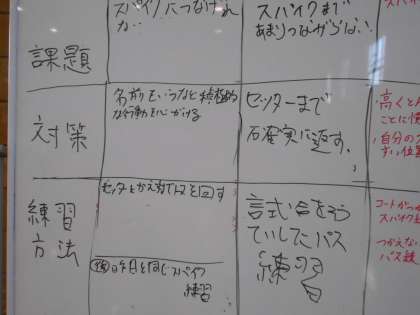 課題
スパイクにつなげれ
ない
スパイクまで
あまりつながらない
対策
名前をいうなど積極的
な行動を心がける
セッターまで
確実に返す。
・高く
ことに
・自分の
すい位置
練習
方法
セッターとかえずに を回す
日を同じスパイク
練習
試合をそう
ていしたパス
練習
コートかつ
スパイク
つかえない
パス練